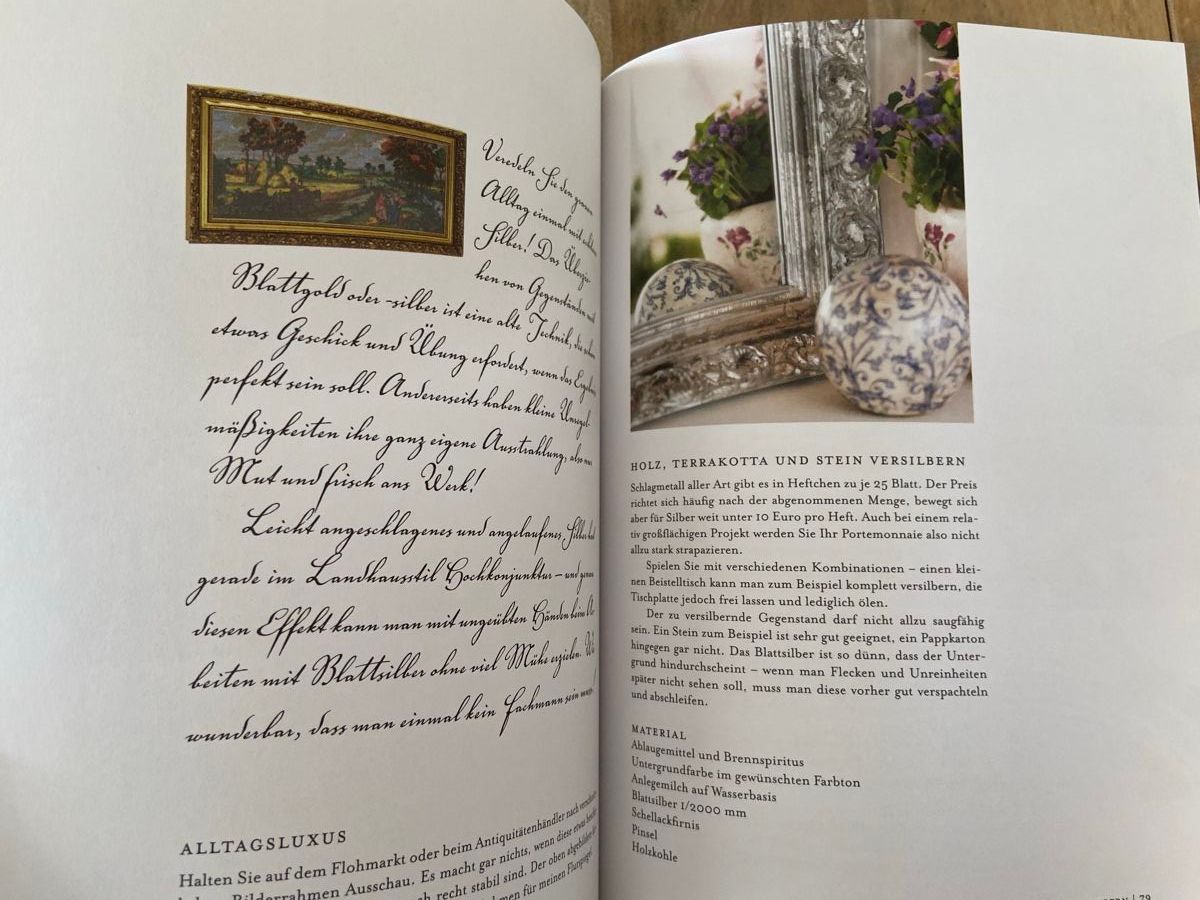 Veredeln Sie den grauen
Alltag einmal mit echtem
Silber! Das Überzie-
hen von Gegenständen mit
Blattgold oder -silber ist eine alte Technik, die schon
etwas Geschick und Übung erfordert, wenn das Ergebnis
perfekt sein soll. Andererseits haben kleine Unregel-
mäßigkeiten ihre ganz eigene Ausstrahlung, also nur
Mut und frisch ans Werk!
Leicht angeschlagenes und angelaufenes Silber hat
gerade im Landhausstil Hochkonjunktur – und genau
diesen Effekt kann man mit ungeübten Händen beim Ar-
beiten mit Blattsilber ohne viel Mühe erzielen. Wie
wunderbar, dass man einmal kein Fachmann sein muss!
ALLTAGSLUXUS
Halten Sie auf dem Flohmarkt oder beim Antiquitätenhändler nach
Bilderrahmen Ausschau. Es macht gar nichts, wenn diese etwas
recht stabil sind. Der oben abgebildete
für meinen Flurspiegel.
HOLZ, TERRAKOTTA UND STEIN VERSILBERN
Schlagmetall aller Art gibt es in Heftchen zu je 25 Blatt. Der Preis
richtet sich häufig nach der abgenommenen Menge, bewegt sich
aber für Silber weit unter 10 Euro pro Heft. Auch bei einem rela-
tiv großflächigen Projekt werden Sie Ihr Portemonnaie also nicht
allzu stark strapazieren.
Spielen Sie mit verschiedenen Kombinationen – einen klei-
nen Beistelltisch kann man zum Beispiel komplett versilbern, die
Tischplatte jedoch frei lassen und lediglich ölen.
Der zu versilbernde Gegenstand darf nicht allzu saugfähig
sein. Ein Stein zum Beispiel ist sehr gut geeignet, ein Pappkarton
hingegen gar nicht. Das Blattsilber ist so dünn, dass der Unter-
grund hindurchscheint – wenn man Flecken und Unreinheiten
später nicht sehen soll, muss man diese vorher gut verspachteln
und abschleifen.
MATERIAL
Ablaugemittel und Brennspiritus
Untergrundfarbe im gewünschten Farbton
Anlegemilch auf Wasserbasis
Blattsilber 1/2000 mm
Schellackfirnis
Pinsel
Holzkohle
| 79